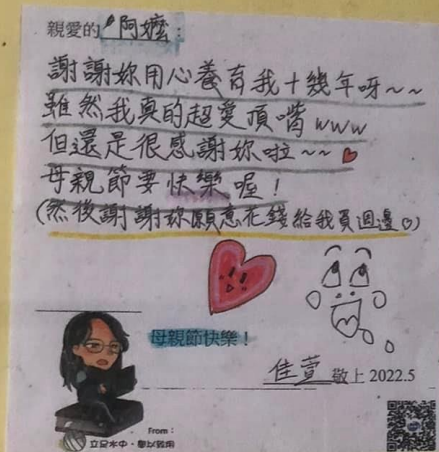 親愛的 阿嬤：
謝謝妳用心養育我十幾年呀~~
雖然我真的超愛頂嘴www
但還是很感謝妳啦~~
母親節要快樂喔！
(然後謝謝妳願意花錢給我買週邊♡)
母親節快樂！
佳萱 敬上 2022.5
From：
立足水中・學以致用